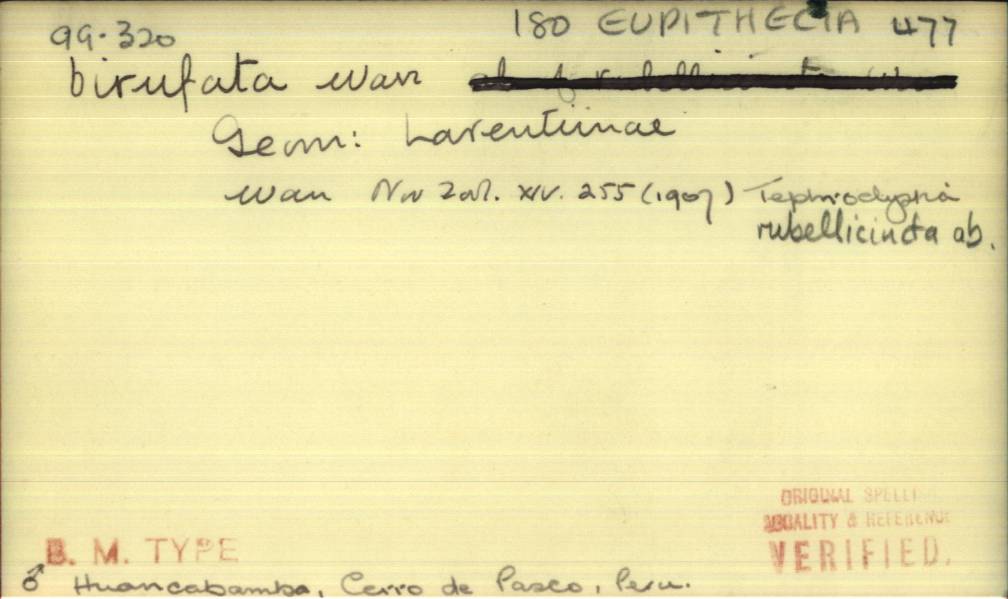 99.320
180 EUPITHECIA 477
birufata Warr
Geom: Larentiinae
Warr Nov Zool. XIV. 255 (1907) Tephroclystia
rubellicincta ab.
ORIGINAL SPELLI
LOCALITY & REFERENCE
VERIFIED.
B. M. TYPE
♂ Huancabamba, Cerro de Pasco, Peru.